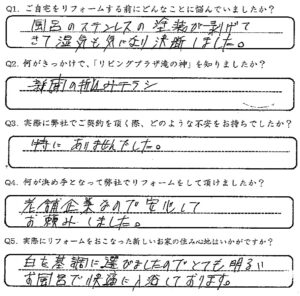 Q1. ご自宅をリフォームする前にどんなことに悩んでいましたか?
風呂のステンレスの塗装が剥げて
きて湿気も気になり決断しました。
Q2. 何がきっかけで、「リビングプラザ滝の神」を知りましたか?
新聞の折込みチラシ
Q3. 実際に弊社でご契約を頂く際、どのような不安をお持ちでしたか?
特にありませんでした。
Q4. 何が決め手となって弊社でリフォームをして頂けましたか?
老舗企業なので安心して
お願いしました。
Q5. 実際にリフォームをおこなった新しいお家の住み心地はいかがですか?
白を基調に選びましたのでとても明るい
お風呂で快適に入浴しております。